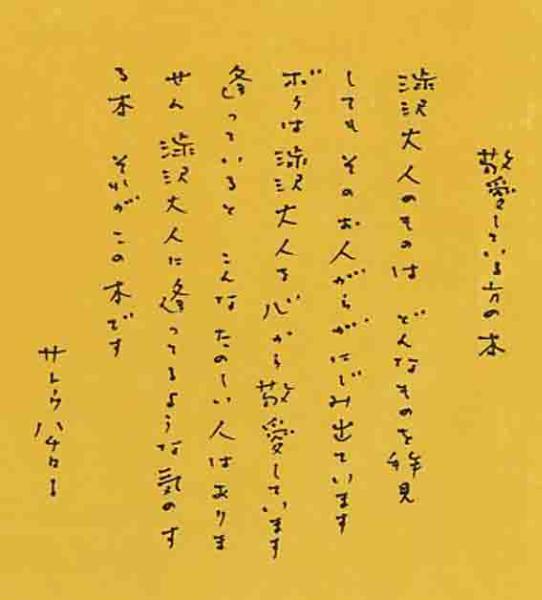 敬愛している方の本
澁沢大人のものは どんなものを拝見
しても そのお人がらがにじみ出ています
ボクは澁沢大人を心から敬愛しています
逢っていると こんなたのしい人はありま
せん 澁沢大人に逢ってるような気のす
る本 それがこの本です
サトウハチロー